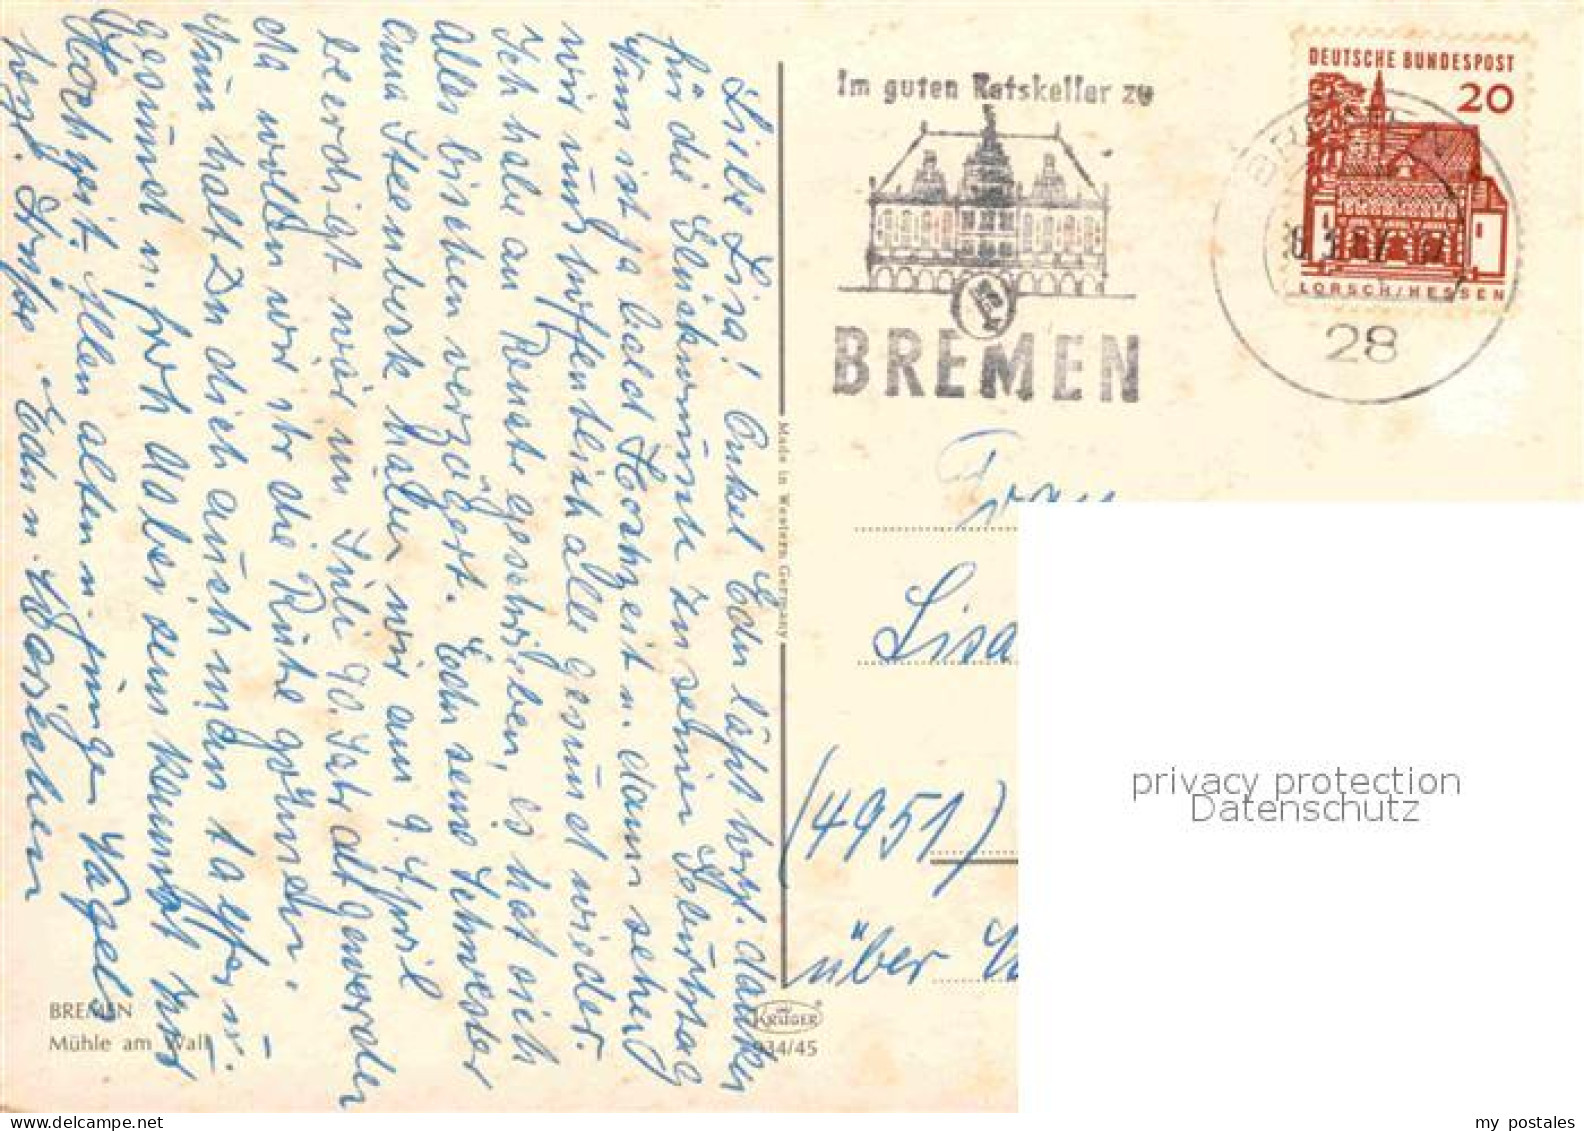 Liebe Lisa! Onkel Edu läßt herzl. danken
für die Glückwünsche zu seinen Geburtstag
Nun ist ja bald Hochzeit u. dann sehen
wir uns hoffentlich alle gesund wieder.
Ich habe an Renate geschrieben, es hat sich
alles bischen verzögert. Edu seine Schwester
Anna Steenberk haben wir am 9. April
beerdigt wär im Juli 90. Jahr alt geworden
da wollen wir ihr die Ruhe gönnen.
Nun halt Du dich auch immer tapfer u.
gesund u. froh aber sein kommt zur
Hochzeit. Allen alten u. jungen Vögeln
herzl. Grüße Edu u.
BREMEN
Mühle am Wall
Made in Western Germany
KRÜGER
934/45
Im guten Ratskeller zu
BREMEN
28
DEUTSCHE BUNDESPOST
20
LORSCH/HESSEN
Frau
Lisa
(4951)
über
privacy protection
Datenschutz
my postales